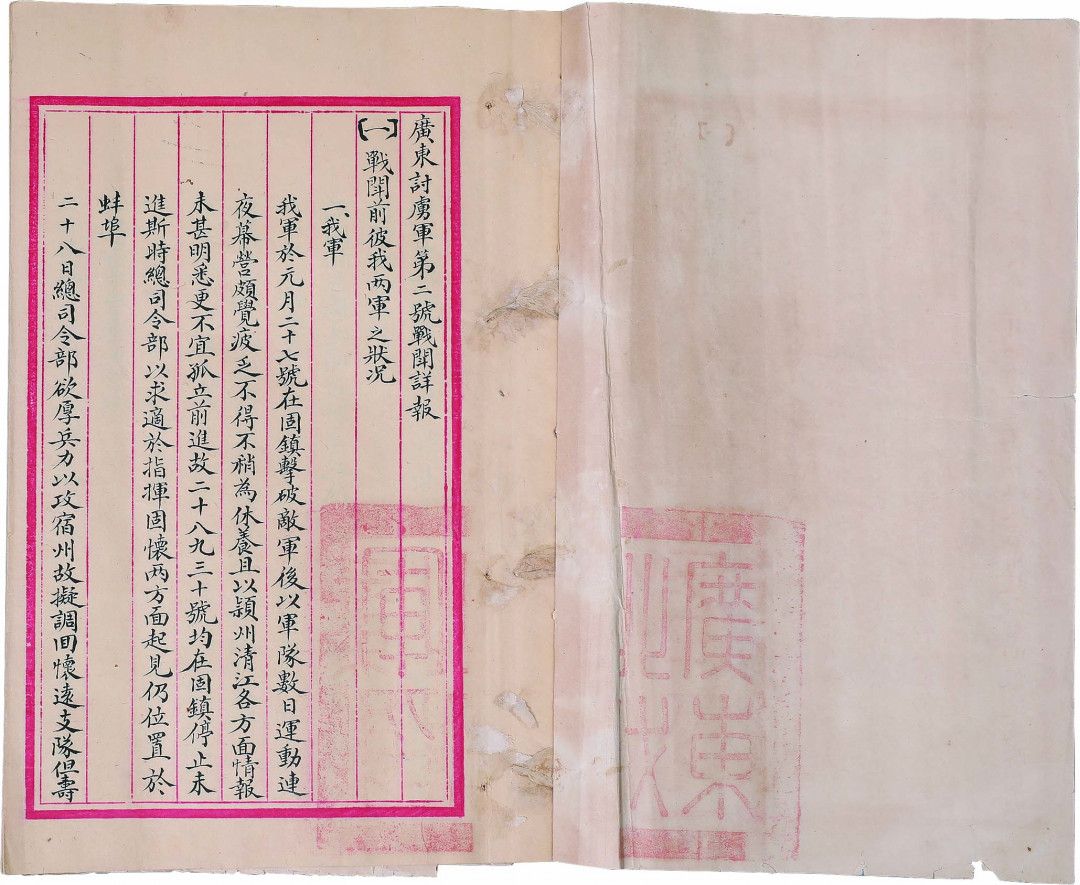 廣東討虜軍第二號戰鬪詳報
【一】戰鬪前彼我两軍之狀况
一、我軍
我軍於元月二十七號在固鎮擊破敵軍後以軍隊數日運動連
夜幕營頗覺疲乏不得不稍為休養且以潁州清江各方面情報
未甚明悉更不宜孤立前進故二十八九三十號均在固鎮停止未
進斯時總司令部以求適於指揮固懷两方面起見仍位置於
蚌埠
二十八日總司令部欲厚兵力以攻宿州故擬調回懷遠支隊但壽
廣東